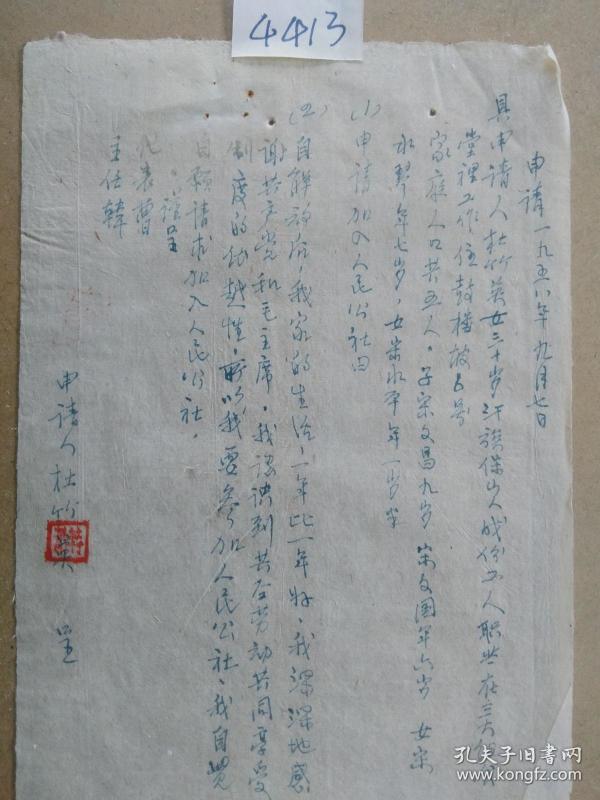 4413
申请一九五八年九月七日
具申请人杜竹英女三十岁汗族保山人成份工人职业在三六
堂裡工作住鼓楼坡5号
家庭人口共五人。子宋文昌九岁 宋文国年六岁 女宋
水琴年七岁，女宋水平年一岁半
(1)申请加入人民公社由
(2)自解放后，我家的生活，一年比一年好，我深深地感
谢共产党和毛主席，我认识到共产劳动共同享受
制度的优越性，所以我要参加人民公社，我自觉
自愿请求加入人民公社，
谨呈
代表曹
主任韓
申请人杜竹英 呈
孔夫子旧书网
www.kongfz.com